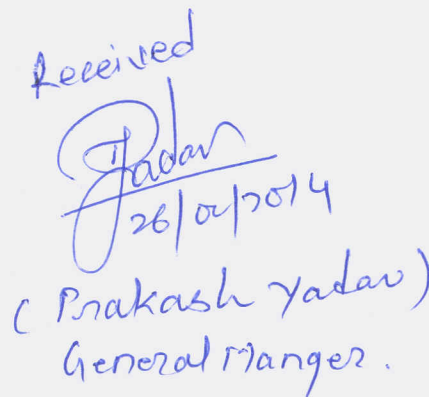 Received
PYadav
26/02/2014
(Prakash Yadav)
General Manger.